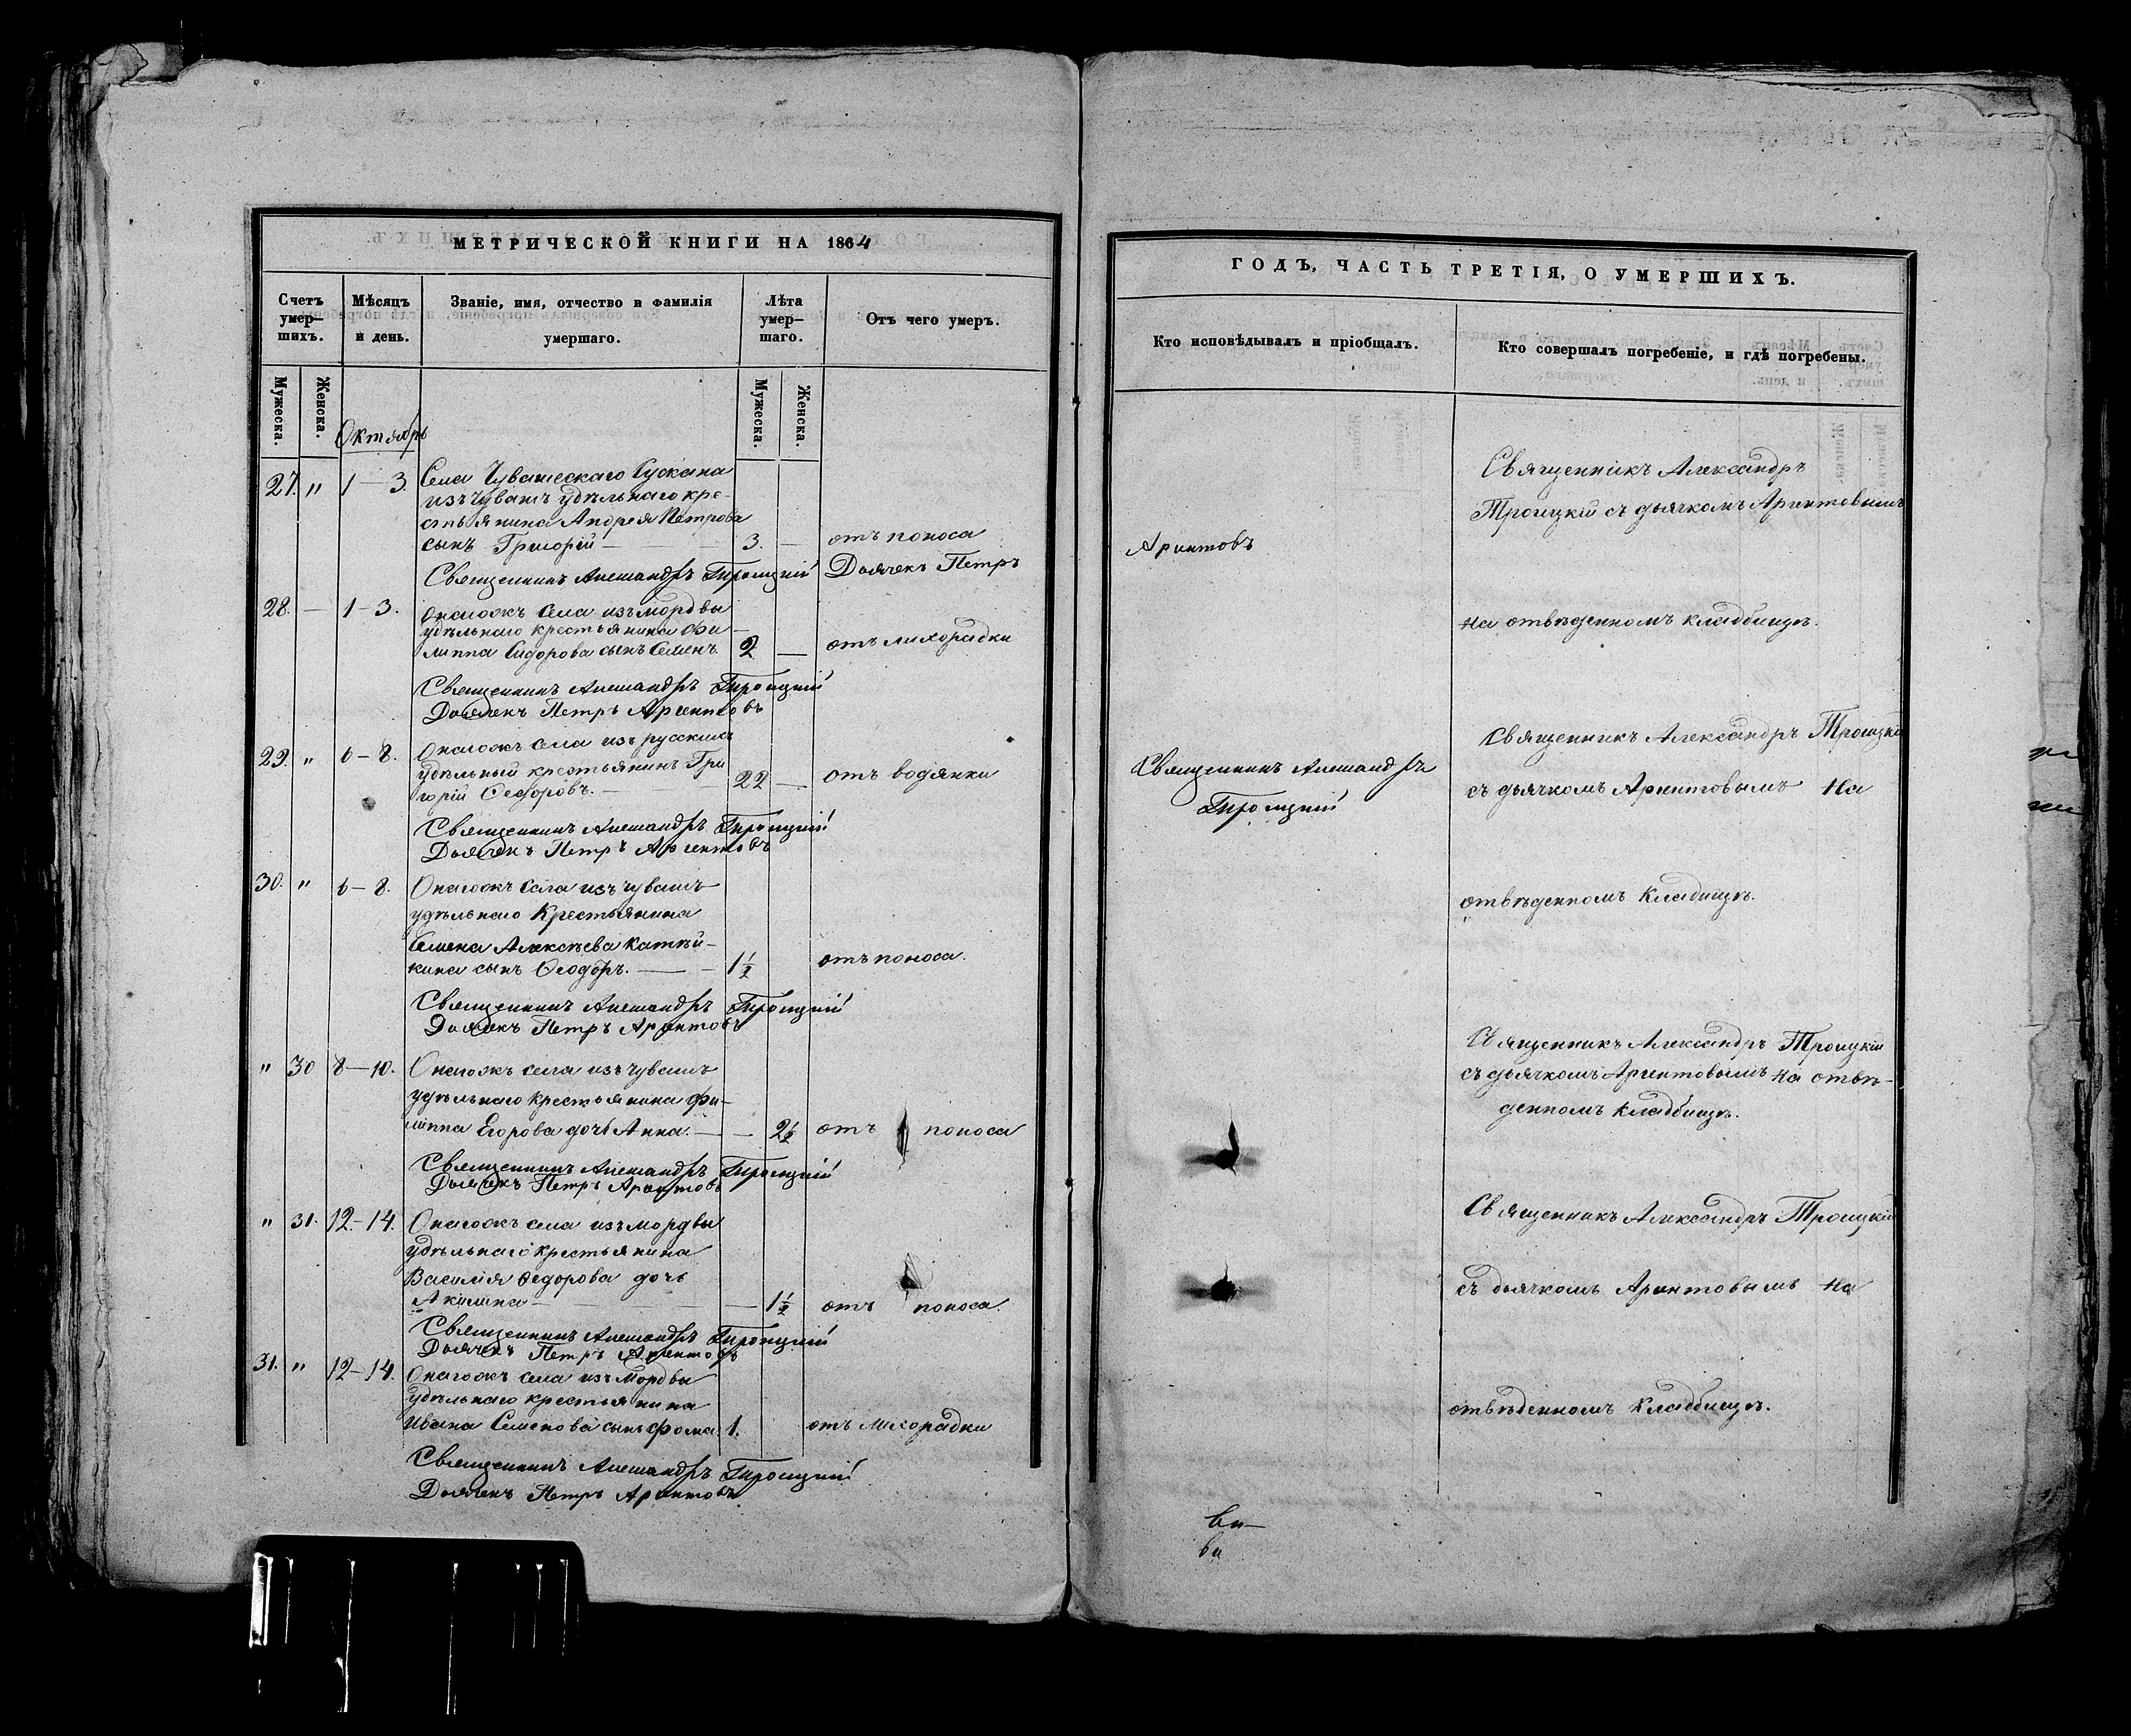 МЕТРИЧЕСКОЙ КНИГИ НА 1864
Счетъ умер—шихъ.
Мѣсяцъ и день.
Званіе, имя, отчество и фамилія умершаго.
Лѣта умер—шаго.
Отъ чего умеръ.
Мужеска.
Женска.
Мужеска.
Женска.
Октябрь
27. " 1—3. Села Чувашескаго Сускана
изъ Чувашъ удѣльнаго кре-
стьянина Андрея Петрова
сынъ Григорій — 3. — отъ поноса
Священникъ Александръ Троицкій Дьячекъ Петръ
28. — 1—3. Онагожъ села изъ мордвы
удѣльнаго крестьянина Фи—
липпа Сидорова сынъ Семенъ 2 — отъ лихорадки
Священникъ Александръ Троицкій
Дьячекъ Петръ Аргентовъ
29. " 6—8. Онагожъ села изъ русскихъ
удѣльный крестьянинъ Гри
горій Ѳедоровъ. — 22 — отъ водянки
Священникъ Александръ Троицкій
Дьячекъ Петръ Аргентовъ
30. " 6—8. Онагожъ села изъ чувашъ
удѣльнаго Крестьянина
Семена Алексѣева
кина сынъ Ѳеодоръ. — 1½ отъ поноса.
Священникъ Александръ Троицкій
Дьячекъ Петръ Аргентовъ
" 30 8—10. Онагожъ села изъ чувашъ
удѣльнаго крестьянина Фи—
липпа Егорова дочь Анна. — — 2½ отъ поноса
Священникъ Александръ Троицкій
Дьячекъ Петръ Аргентовъ
" 31. 12—14. Онагожъ села изъ мордвы
удѣльнаго крестьянина
Василія Ѳедорова дочь
Акилина — — 1½ отъ поноса.
Священникъ Александръ Троицкій
Дьячекъ Петръ Аргентовъ
31. " 12—14. Онагожъ села изъ Мордвы
удѣльнаго крестьянина
Ивана Семенова сынъ Фома. 1. отъ лихорадки
Священникъ Александръ Троицкій
Дьячекъ Петръ Аргентовъ.
ГОДЪ, ЧАСТЬ ТРЕТІЯ, О УМЕРШИХЪ.
Кто исповѣдывалъ и пріобщалъ.
Кто совершалъ погребеніе, и гдѣ погребены.
Священникъ Александръ
Троицкій съ дьячкомъ Аргентовымъ
Аргентовъ
на отвѣденномъ кладбищѣ.
Священникъ Александръ Троицкій
Священникъ Александръ
Троицкій
съ дьячкомъ Аргентовымъ на
отвѣденномъ Кладбищѣ.
Священникъ Александръ Троицкій
съ дьячкомъ Аргентовымъ на отвѣ-
денномъ кладбищѣ.
Священникъ Александръ Троицкій
съ дьячкомъ Аргентовымъ на
отвѣденномъ Кладбищѣ.